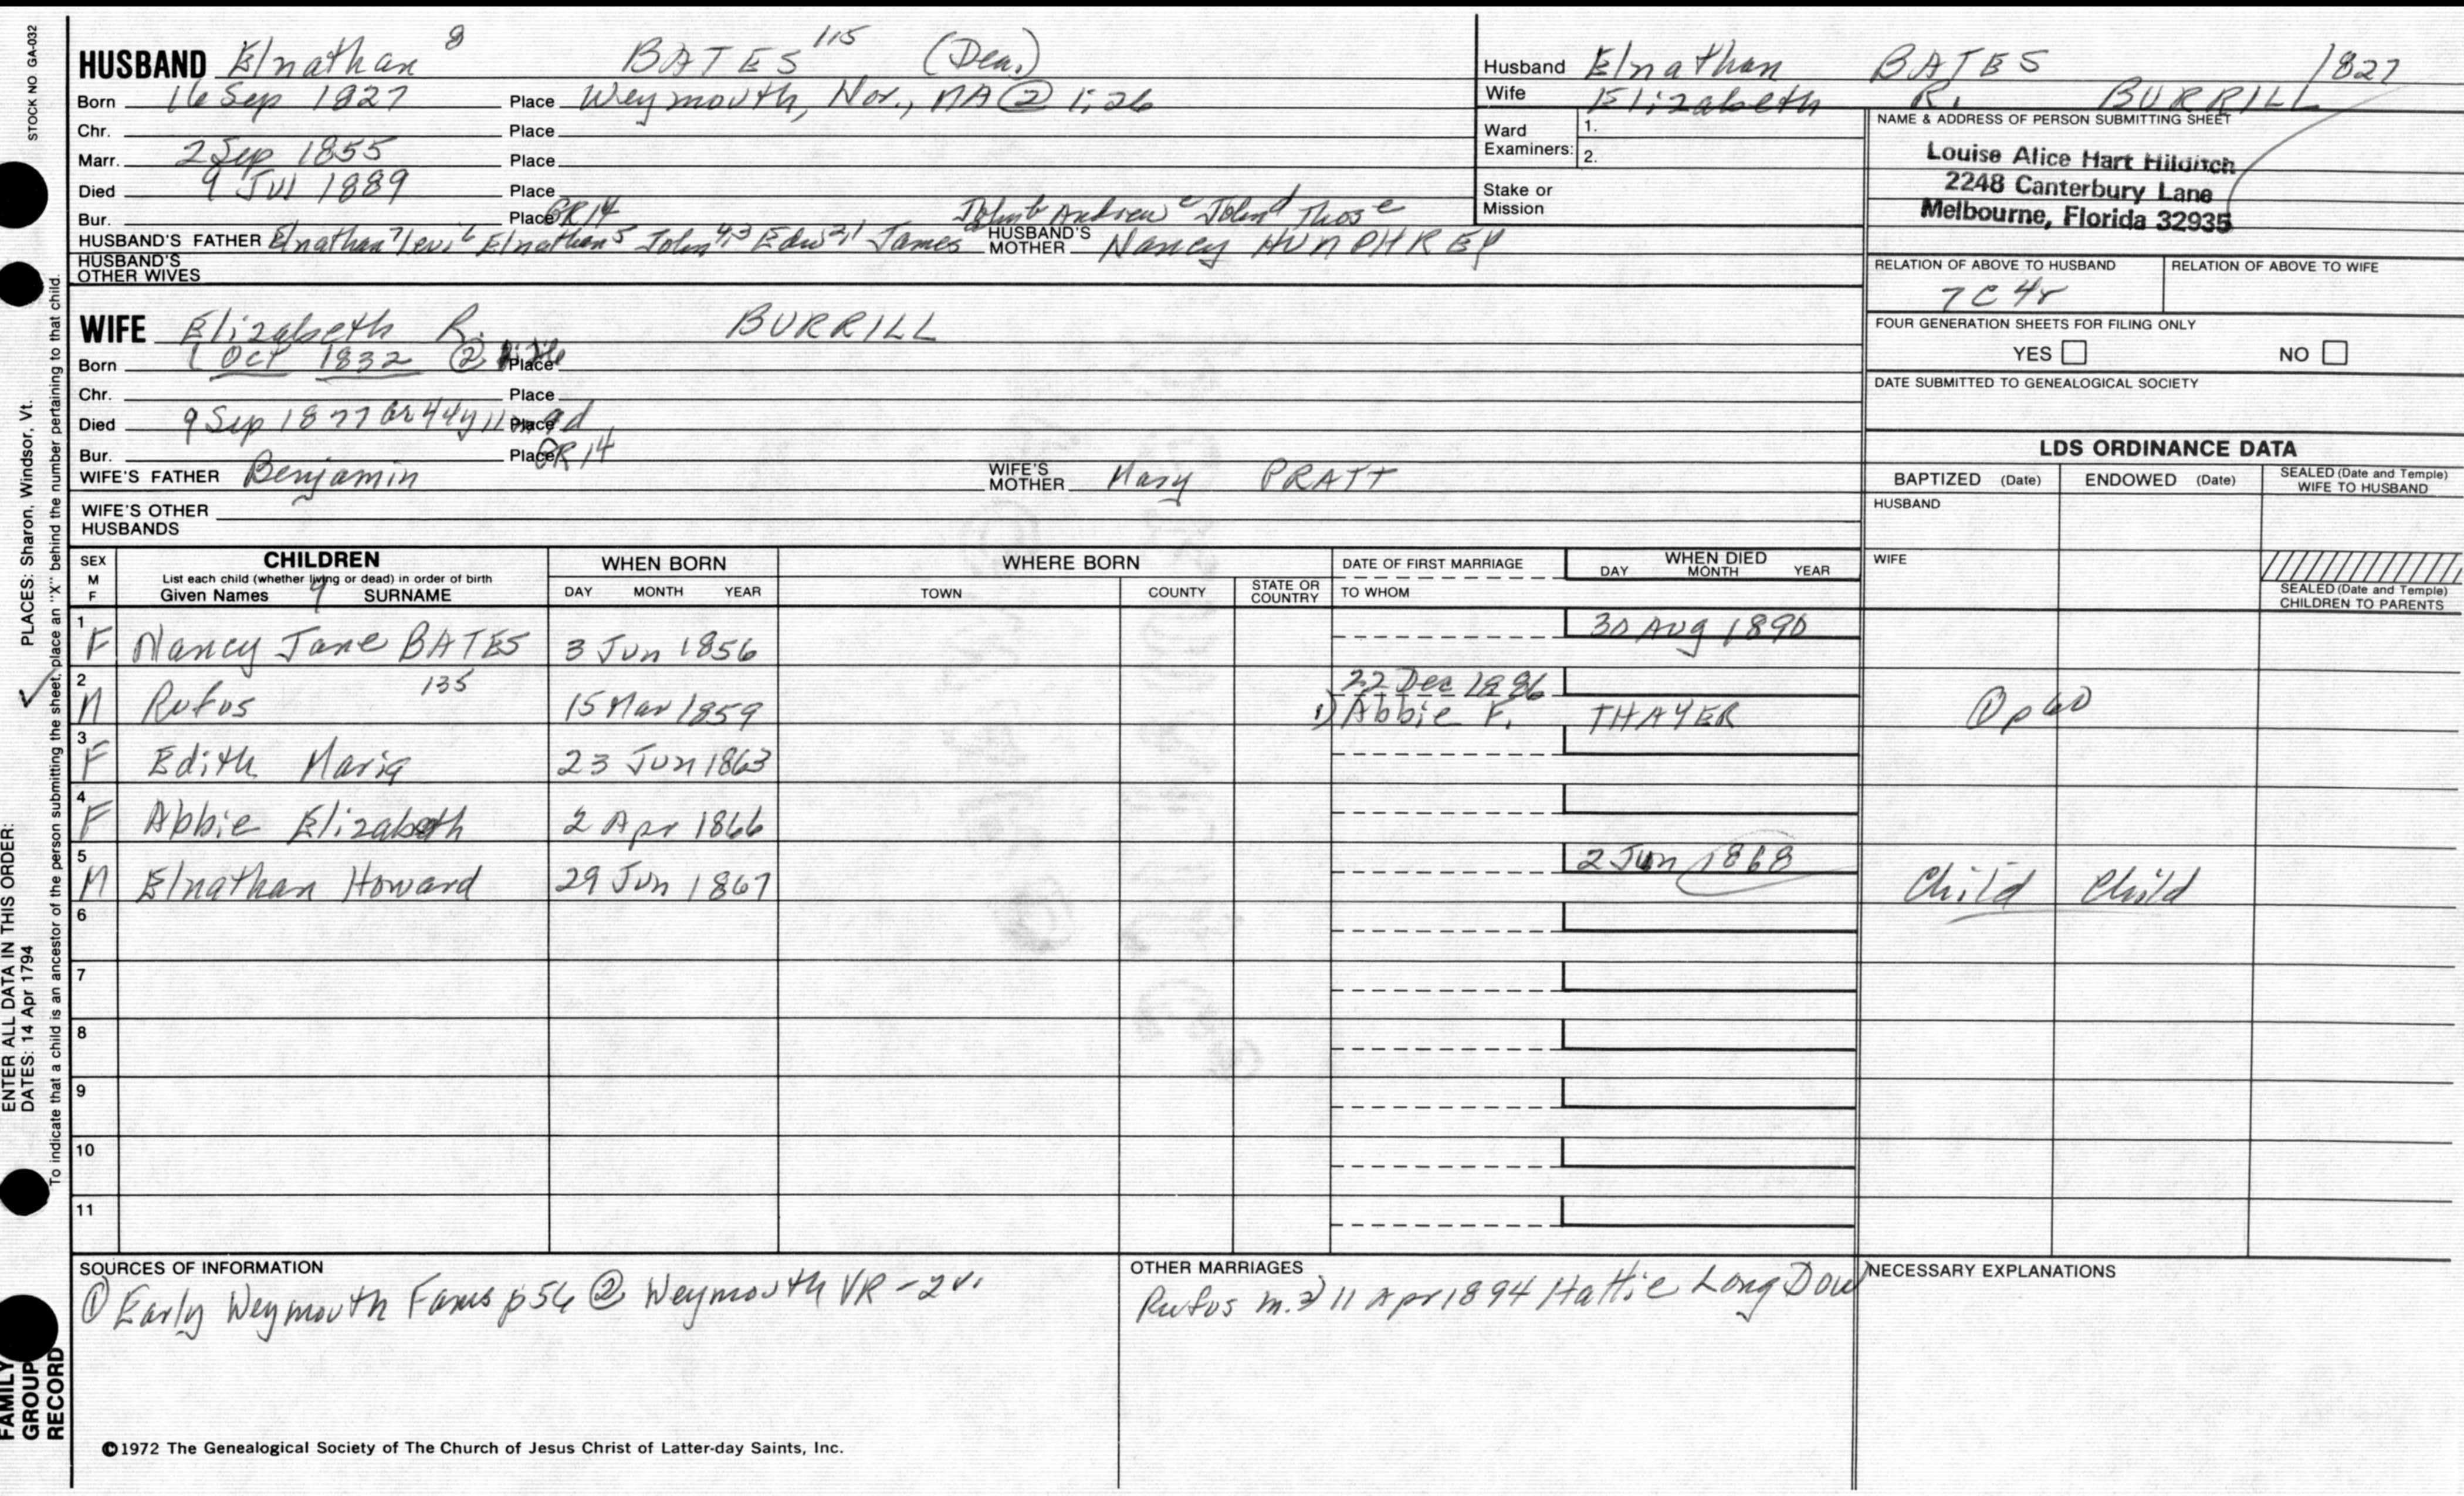 STOCK NO GA-032
PLACES: Sharon, Windsor, Vt.
ENTER ALL DATA IN THIS ORDER:
DATES: 14 Apr 1794
To indicate that a child is an ancestor of the person submitting the sheet, place an "X" behind the number pertaining to that child.
FAMILY
GROUP
RECORD
HUSBAND Elnathan 8 BATES 115 (Dea.)
Born 16 Sep 1827 Place Weymouth, Nor., MA ② 1:26
Chr. Place
Marr. 2 Sep 1855 Place
Died 9 Jul 1889 Place
Bur. Place GR14
John b Andrew c John d Thos e
HUSBAND'S FATHER Elnathan 7 Levi 6 Elnathan 5 John 4,3 Edw 2,1 James HUSBAND'S MOTHER Nancy HUMPHREY
HUSBAND'S OTHER WIVES
WIFE Elizabeth R. BURRILL
Born 1 Oct 1832 ② Place
Chr. Place
Died 9 Sep 1877 44y 11m 9d Place
Bur. Place GR14
WIFE'S FATHER Benjamin WIFE'S MOTHER Mary PRATT
WIFE'S OTHER HUSBANDS
Husband Elnathan BATES 1827
Wife Elizabeth R. BURRILL
Ward Examiners: 1.
2.
Stake or Mission
NAME & ADDRESS OF PERSON SUBMITTING SHEET
Louise Alice Hart Hilditch
2248 Canterbury Lane
Melbourne, Florida 32935
RELATION OF ABOVE TO HUSBAND RELATION OF ABOVE TO WIFE
7C4r
FOUR GENERATION SHEETS FOR FILING ONLY
YES NO
DATE SUBMITTED TO GENEALOGICAL SOCIETY
LDS ORDINANCE DATA
BAPTIZED (Date) ENDOWED (Date) SEALED (Date and Temple) WIFE TO HUSBAND
HUSBAND
WIFE
SEALED (Date and Temple) CHILDREN TO PARENTS
SEX M F
CHILDREN
List each child (whether living or dead) in order of birth
Given Names 9 SURNAME
WHEN BORN
DAY MONTH YEAR
WHERE BORN
TOWN COUNTY STATE OR COUNTRY
DATE OF FIRST MARRIAGE
TO WHOM
WHEN DIED
DAY MONTH YEAR
1 F Nancy Jane BATES 3 Jun 1856 30 Aug 1890
2 M Rufus 135 15 Mar 1859 22 Dec 1886
1) Abbie F. THAYER ① p60
3 F Edith Maria 23 Jun 1863
4 F Abbie Elizabeth 2 Apr 1866
5 M Elnathan Howard 29 Jun 1867 2 Jun 1868 Child Child
6
7
8
9
10
11
SOURCES OF INFORMATION
① Early Weymouth Fams p56 ② Weymouth VR - 2v.
OTHER MARRIAGES
Rufus m. 2) 11 Apr 1894 Hattie Long Dow
NECESSARY EXPLANATIONS
©1972 The Genealogical Society of The Church of Jesus Christ of Latter-day Saints, Inc.